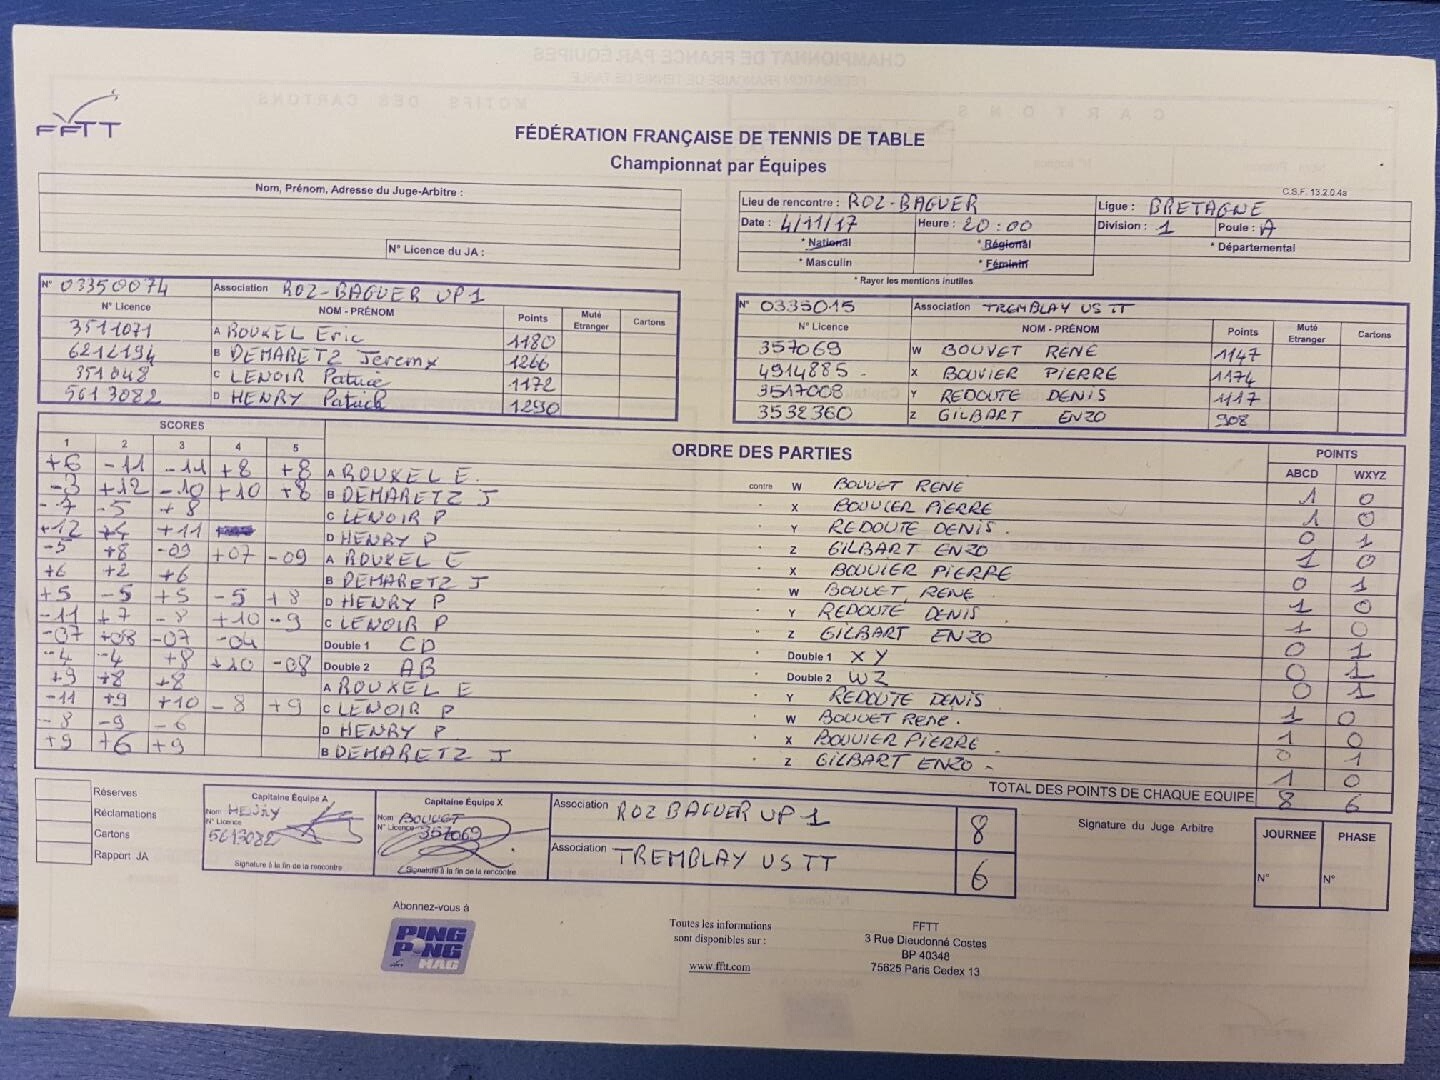 FFTT
FÉDÉRATION FRANÇAISE DE TENNIS DE TABLE
Championnat par Équipes
C.S.F. 13.2.0.4a
Nom, Prénom, Adresse du Juge-Arbitre :
N° Licence du JA :
Lieu de rencontre : ROZ-BAGUER Ligue : BRETAGNE
Date : 4/11/17 Heure : 20:00 Division : 1 Poule : A
* National * Régional * Départemental
* Masculin * Féminin
* Rayer les mentions inutiles
N° 03350074 Association ROZ-BAGUER UP 1
N° Licence NOM - PRÉNOM Points Muté Etranger Cartons
3511071 A ROUXEL Eric 1180
6212194 B DEMARETZ Jeremy 1266
351048 C LENOIR Patrice 1172
5613082 D HENRY Patrick 1290
N° 0335015 Association TREMBLAY US TT
N° Licence NOM - PRÉNOM Points Muté Etranger Cartons
357069 W BOUVET RENE 1147
4914885 X BOUVIER PIERRE 1174
3517008 Y REDOUTE DENIS 1117
3532360 Z GILBART ENZO 908
SCORES ORDRE DES PARTIES POINTS
1 2 3 4 5 ABCD WXYZ
+6 -11 -11 +8 +8 A ROUXEL E. contre W BOUVET RENE 1 0
-3 +12 -10 +10 +8 B DEMARETZ J X BOUVIER PIERRE 1 0
-7 -5 +8 C LENOIR P Y REDOUTE DENIS. 0 1
+12 +4 +11 D HENRY P Z GILBART ENZO 1 0
-5 +8 -09 +07 -09 A ROUXEL E X BOUVIER PIERRE 0 1
+6 +2 +6 B DEMARETZ J W BOUVET RENE 1 0
+5 -5 +5 -5 +8 D HENRY P Y REDOUTE DENIS 1 0
-11 +7 -8 +10 -9 C LENOIR P Z GILBART ENZO 0 1
-07 +08 -07 -04 Double 1 CD Double 1 XY 0 1
-4 -4 +8 +10 -08 Double 2 AB Double 2 WZ 0 1
+9 +8 +8 A ROUXEL E Y REDOUTE DENIS 1 0
-11 +9 +10 -8 +9 C LENOIR P W BOUVET RENE. 1 0
-8 -9 -6 D HENRY P X BOUVIER PIERRE 0 1
+9 +6 +9 B DEMARETZ J Z GILBART ENZO - 1 0
TOTAL DES POINTS DE CHAQUE EQUIPE 8 6
Réserves
Réclamations
Cartons
Rapport JA
Capitaine Équipe A
Nom HENRY
N° Licence
5613082
Signature à la fin de la rencontre
Capitaine Équipe X
Nom BOUVET
N° Licence 357069
Signature à la fin de la rencontre
Association ROZ BAGUER UP 1 8
Association TREMBLAY US TT 6
Signature du Juge Arbitre
JOURNEE PHASE
N° N°
Abonnez-vous à
PING
PONG
MAG
Toutes les informations
sont disponibles sur :
www.fftt.com
FFTT
3 Rue Dieudonné Costes
BP 40348
75625 Paris Cedex 13